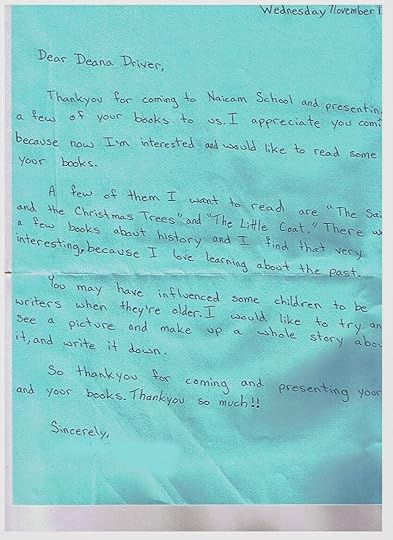 Wednesday November 1
Dear Deana Driver,
Thankyou for coming to Naicam School and presentin
a few of your books to us. I appreciate you comi
because now I'm interested and would like to read some
your books.
A few of them I want to read are "The Sai
and the Christmas Trees" and "The Little Coat." There w
a few books about history and I find that very
interesting, because I love learning about the past.
You may have influenced some children to be
writers when they're older. I would like to try an
see a picture and make up a whole story abou
it, and write it down.
So thankyou for coming and presenting your
and your books. Thankyou so much!!
Sincerely,